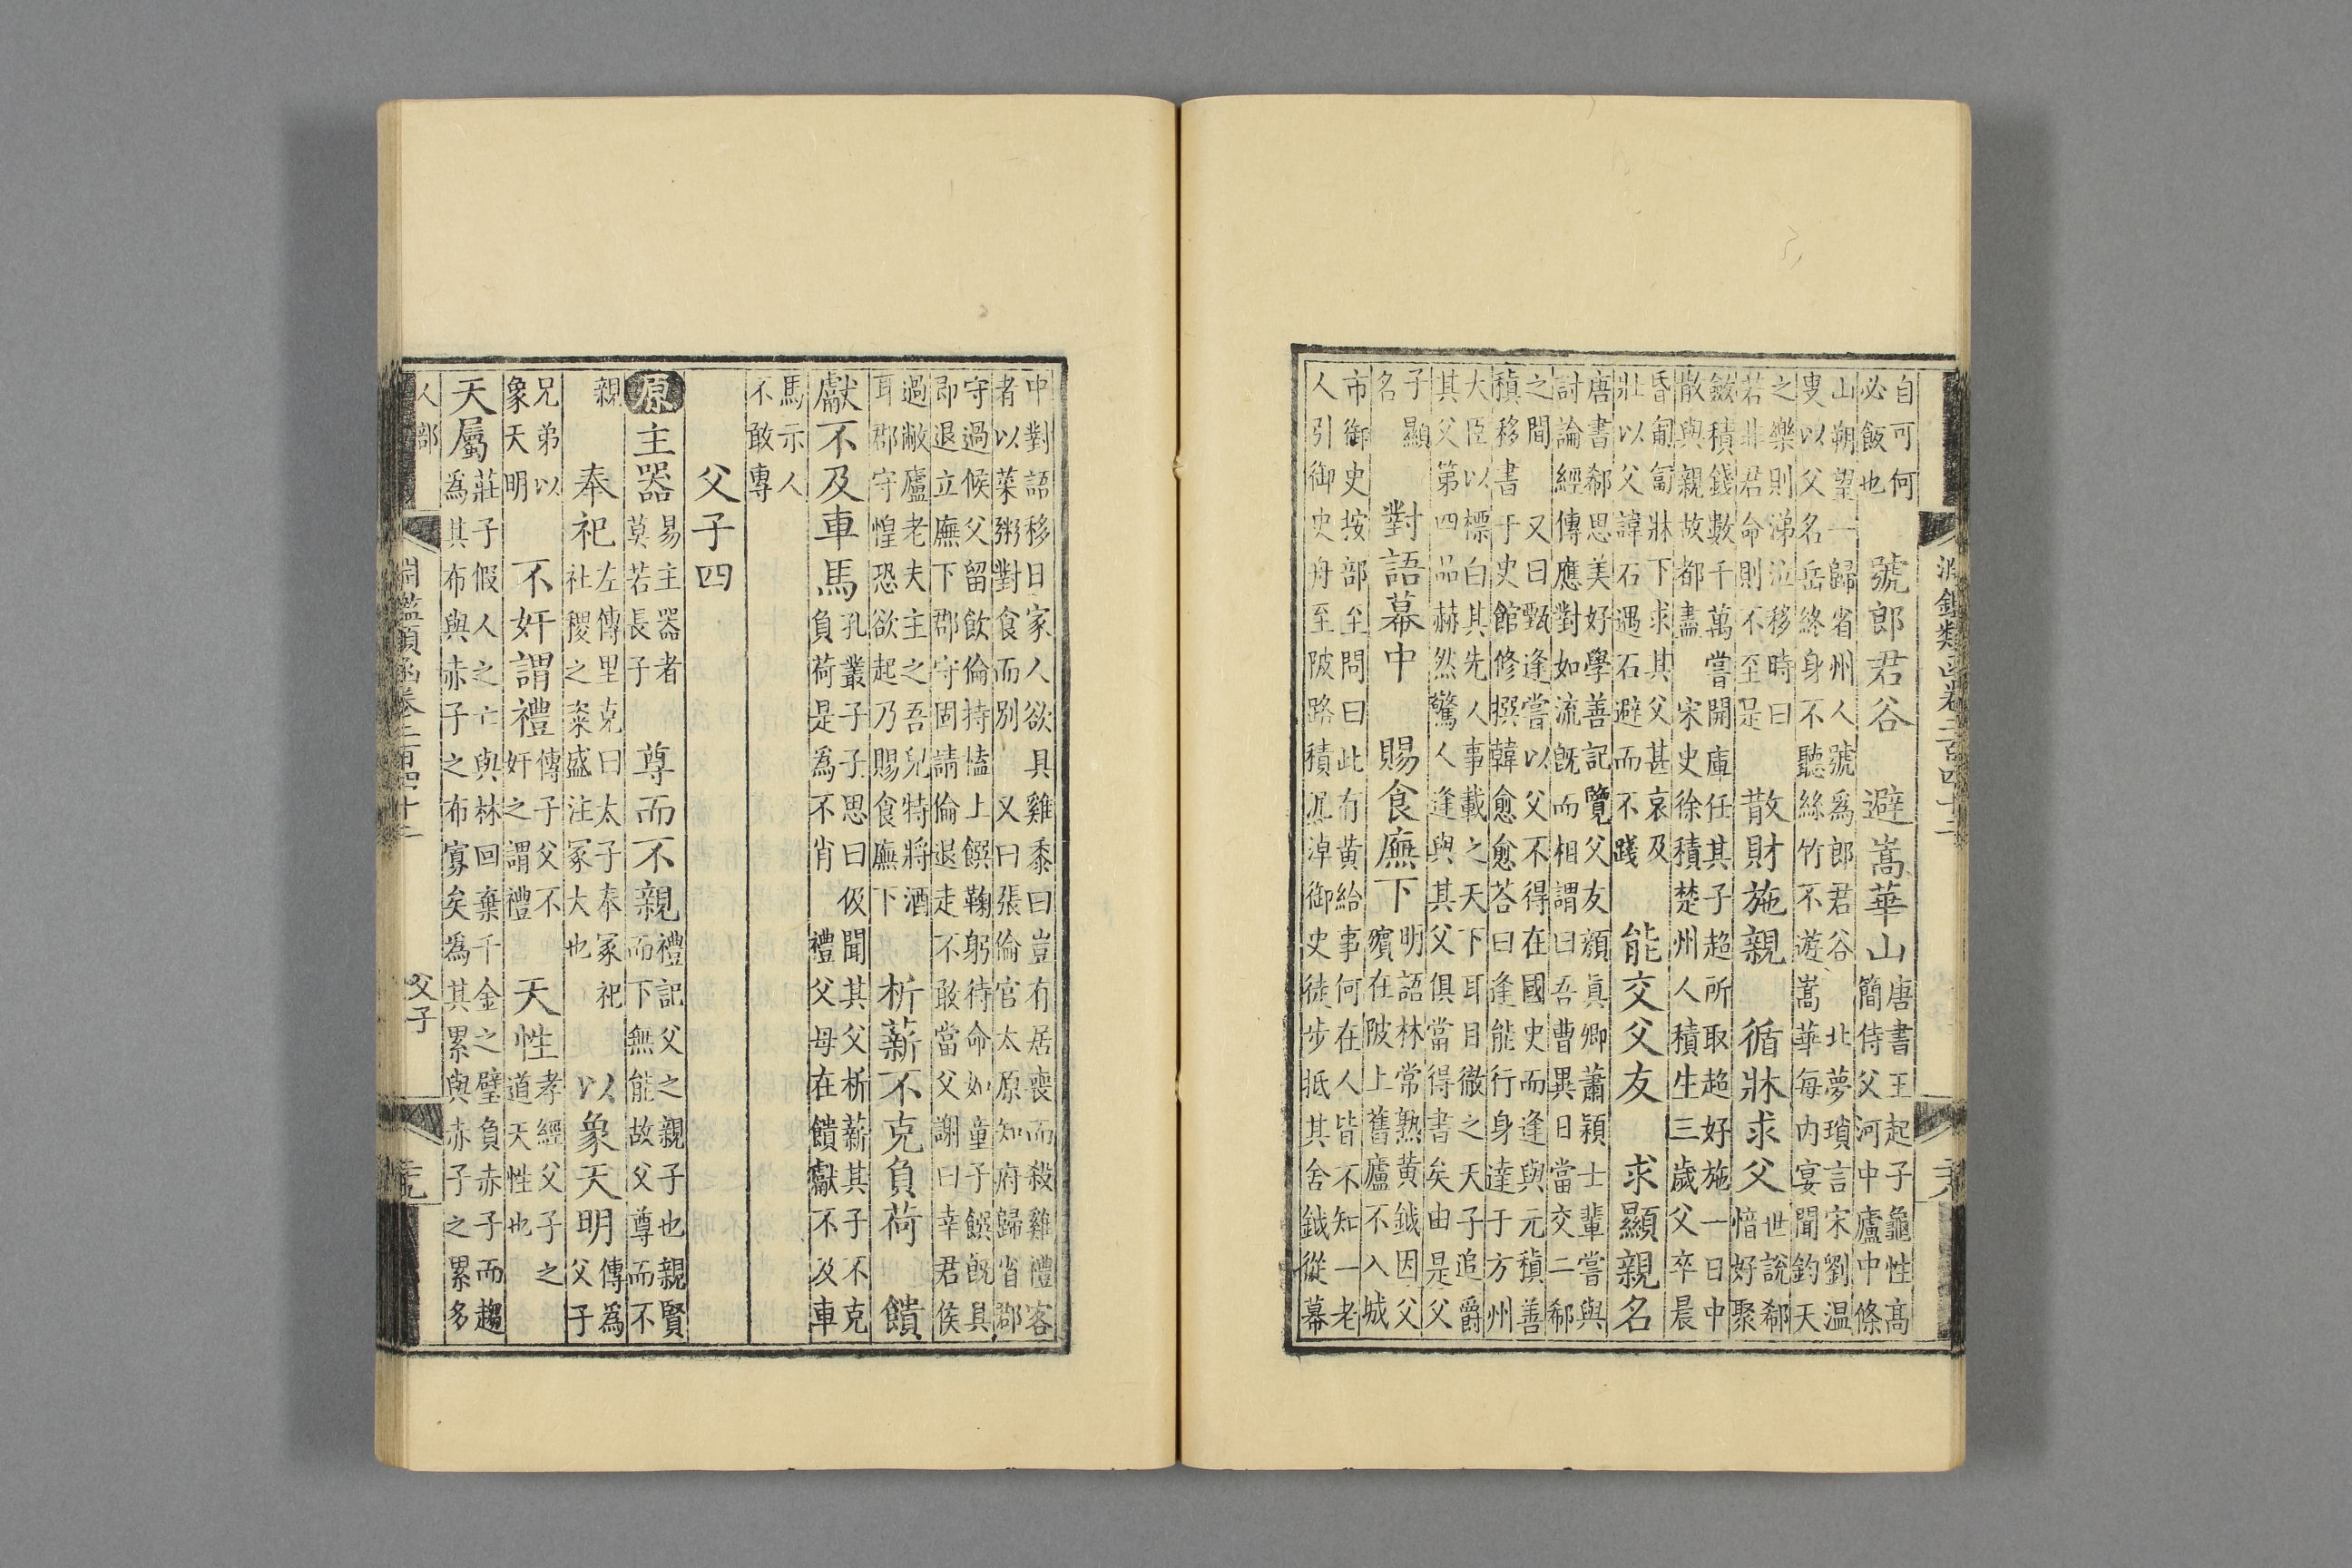 淵鑑類函卷二百四十二
自可何
必飯也
號郎君谷 避嵩華山
唐書王起子龜性高
簡侍父河中廬中條
山朔望一歸省州人號爲郎君谷 北夢瑣言宋劉溫
叟以父名岳終身不聽絲竹不遊嵩華每内宴聞鈞天
之樂則涕泣移時曰
若非君命則不至是
散財施親 循牀求父
世說郗
愔好聚
斂積錢數千萬嘗開庫任其子超所取超好施一日中
散與親故都盡 宋史徐積楚州人積生三歲父卒晨
昏匍匐牀下求其父甚哀及
壯以父諱石遇石避而不踐
能交父友 求顯親名
唐書郗思美好學善記覽父友顔眞卿蕭穎士輩嘗與
討論經傳應對如流旣而相謂曰吾曹異日當交二郗
之間 又曰甄逢嘗以父不得在國史而逢與元稹善
稹移書于史館修撰韓愈愈荅曰逢能行身達于方州
大臣以標白其先人事載之天下耳目徹之天子追爵
其父第四品赫然驚人逢與其父俱當得書矣由是父
子顯
名
對語幕中 賜食廡下
明語林常熟黄鉞因父
殯在陂上舊廬不入城
市御史按部至問曰此有黃給事何在人皆不知一老
人引御史舟至陂路積泥淖御史徒步抵其舍鉞從幕
中對語移日家人欲具雞黍曰豈有居喪而殺雞禮客
者以菜粥對食而別 又曰張倫官太原知府歸省郡
守過候父留飲倫持榼上饌鞠躬待命如童子饌旣具
即退立廡下郡守固請倫退走不敢當父謝曰幸君侯
過敝廬老夫主之吾兒特將酒
耳郡守惶恐欲起乃賜食廡下
析薪不克負荷 饋
獻不及車馬
孔叢子子思曰伋聞其父析薪其子不克
負荷是爲不肖 禮父母在饋獻不及車
馬示人
不敢專
父子四
原主器
易主器者
莫若長子
尊而不親
禮記父之親子也親賢
而下無能故父尊而不
親
奉祀
左傳里克曰太子奉冢祀
社稷之粢盛注冢大也
以象天明
傳爲
父子
兄弟以
象天明
不奸謂禮
傳子父不
奸之謂禮
天性
孝經父子之
道天性也
天屬
莊子假人之亡與林回棄千金之璧負赤子而趨
爲其布與赤子之布寡矣爲其累與赤子之累多
人部
淵鑑類函卷二百四十二
父子